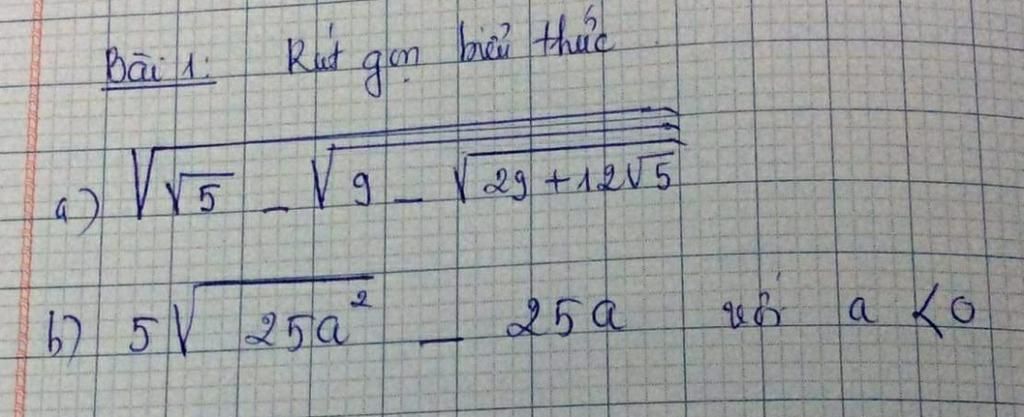 Bài 1: Rút gọn biểu thức
a) √(√5 - √(9 - √(29 + 12√5)))
b) 5√(25a²) - 25a với a < 0